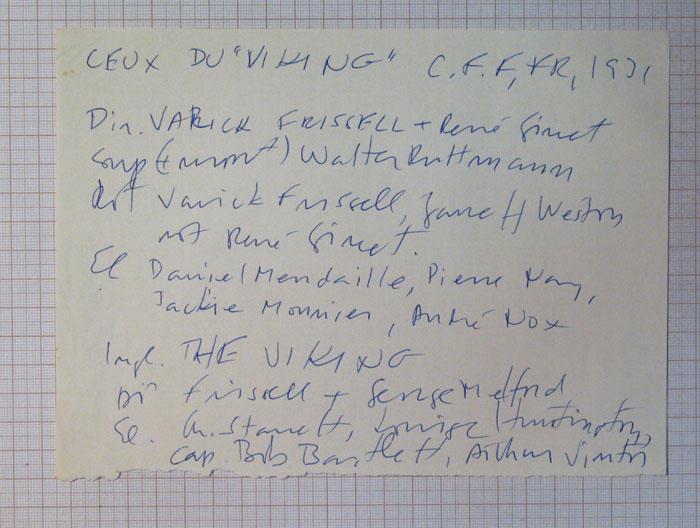 CEUX DU "VIKING" C.F.F, FR, 1931
Dir. VARICK FRISSELL + René Ginet
Sup (mont) Walter Ruttmann
Varick Frissell, Garrett Weston
René Ginet.
El Daniel Mendaille, Pierre Nay,
Jackie Monnier, André Nox
Ingl. THE VIKING
Dir Frissell + George Melford
El. Ch. Starrett, Louise Huntington,
Cap. Bob Bartlett, Arthur Vinton